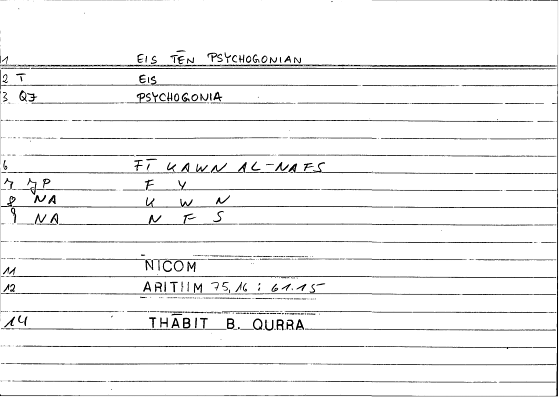 1 EIS TĒN PSYCHOGONIAN
2 T EIS
3 QJ PSYCHOGONIA
6 FĪ KAWN AL-NAFS
7 JP F Y
8 NA K W N
9 NA N F S
11 NICOM
12 ARITHM 75,16 : 61.15
14 THĀBIT B. QURRA